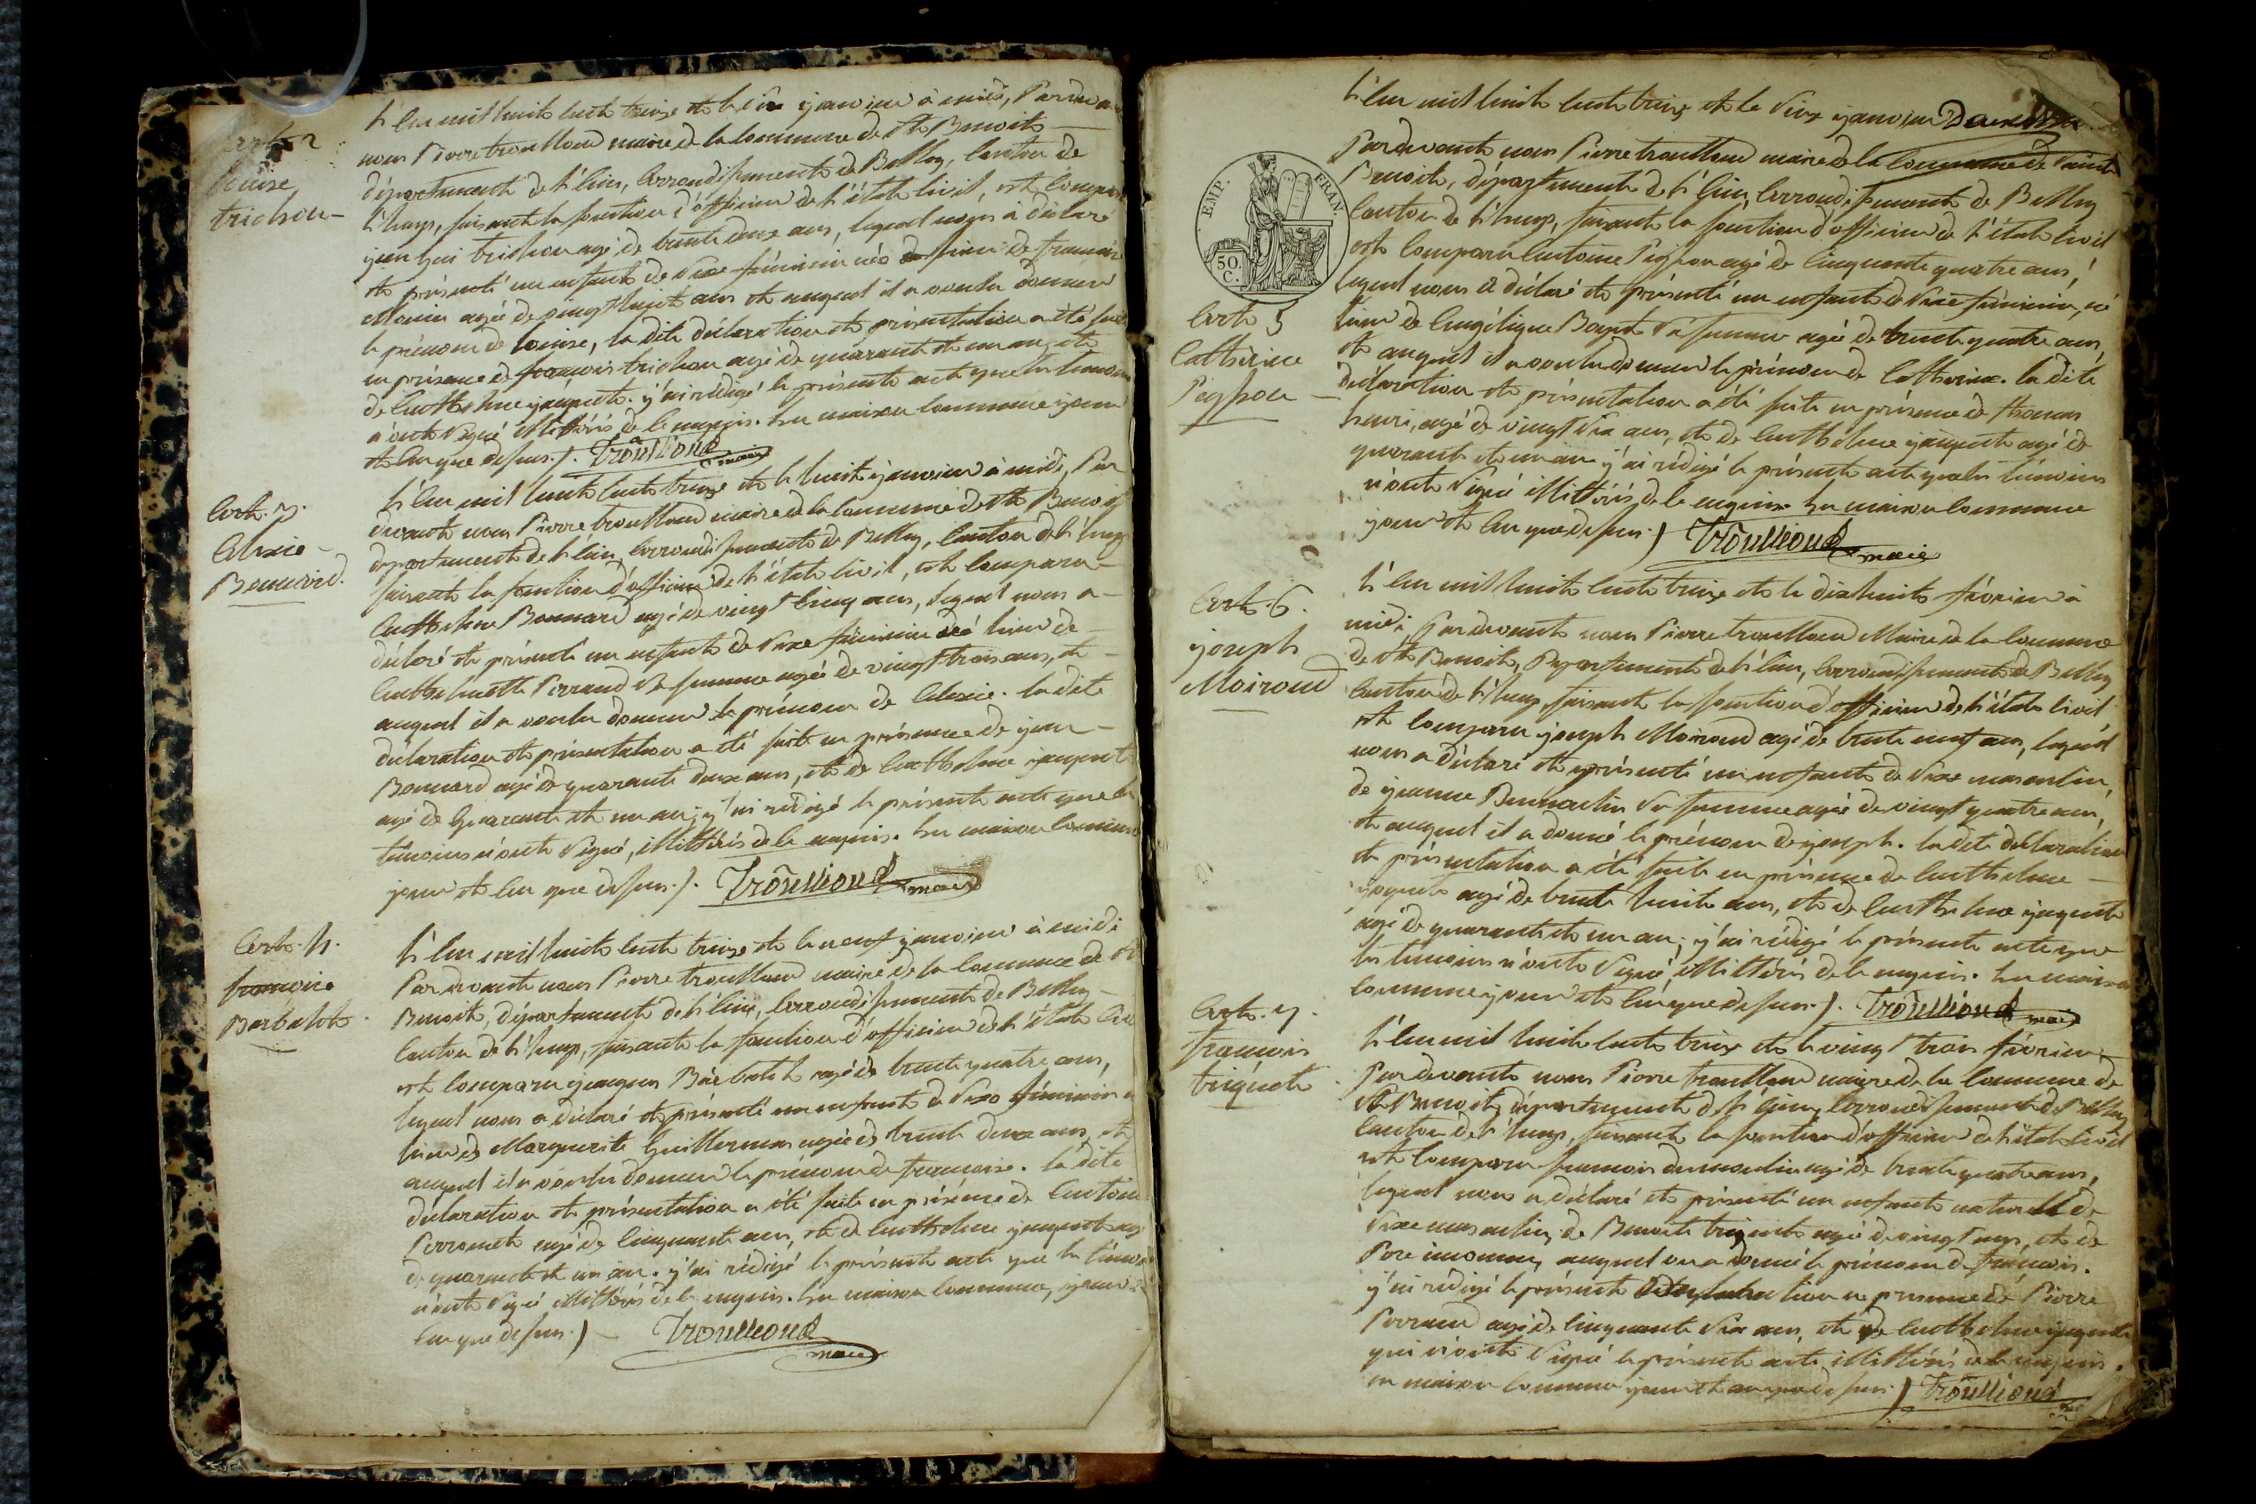 Louise
trichon
L'an mil huit cents treize et le six janvier à midi, Pardevant
nous Pierre trouilloud maire de la Commune de St Benoit
département de L'ain, Arrondissement de Belley, Canton de
L'huys, faisant la fonction d'officier de L'état civil, est comparu
trichon agé de trente deux ans, lequel nous à déclaré
et présenté un enfant de sexe féminin née
agée de vingt huit ans et auquel il a voulu donner
le prénom de Louise, la dite déclaration et présentation a été faite
en présence de françois trichon agé de quarante et un an, et
de Anthelme jaquet. j'ai rédigé le présent acte que les témoins
n'ont signé illittérés de le enquis. En maison commune jour
et an que dessus ./. Trouilloud maire
Art. 3.
Alexie
Bonnard.
L'an mil huit cents treize et le huit janvier à midi, Par
devant nous Pierre trouilloud maire de la commune de St Benoit
département de L'ain, Arrondissement de Belley, Canton de L'huys
faisant la fonction d'officier de L'état civil, est comparu
Anthelme Bonnard agé de vingt cinq ans, lequel nous a
déclaré et présenté un enfant de sexe féminin né hier de
Anthelmette Perraud sa femme agée de vingt trois ans, et
auquel il a voulu donner le prénom de Alexie. la dite
déclaration et présentation a été faite en présence de jean
Bonnard agé de quarante deux ans, et de Anthelme jaquet
agé de quarante et un an; j'ai rédigé le présent acte que les
témoins n'ont signé, illittérés de le enquis. En maison commune
jour et an que dessus ./. Trouilloud maire
Art. 4.
francoise
Barbolat
L'an mil huit cents treize et le neuf janvier à midi
Pardevant nous Pierre trouilloud maire de la Commune de St
Benoit, département de L'ain, Arrondissement de Belley
Canton de L'huys, faisant la fonction d'officier de L'état Civil
est comparu jacques agé de trente quatre ans,
lequel nous a déclaré et présenté un enfant de sexe féminin né
hier de Marguerite Guillermin agée de trente deux ans, et
auquel il a voulu donner le prénom de francoise. la dite
déclaration et présentation a été faite en présence de Antoine
agé de cinquante ans, et de Anthelme jaquet agé
de quarante et un an. j'ai rédigé le présent acte que les témoins
n'ont signé illittérés de le enquis. En maison commune, jour et
an que dessus ./. Trouilloud
maire
L'an mil huit cents treize et le janvier
Pardevant nous Pierre trouilloud maire de la Commune de Saint
Benoit, département de L'ain, Arrondissement de Belley
Canton de L'huys, faisant la fonction d'officier de L'état civil
EMP. FRAN.
50 C.
est comparu Antoine Pighon agé de cinquante quatre ans,
lequel nous a déclaré et présenté un enfant de sexe féminin, né
Art. 5
Catherine
Pighon
hier de Angélique sa femme agée de trente quatre ans,
et auquel il a voulu donner le prénom de Catherine. la dite
déclaration et présentation a été faite en présence de thomas
agé de vingt six ans, et de Anthelme jaquet agé de
quarante et un an j'ai rédigé le présent acte que les témoins
n'ont signé illittérés de le enquis. En maison commune
jour et an que dessus ./. Trouilloud
maire
Art. 6.
joseph
Moiroud
L'an mil huit cents treize et le dix huit février à
midi Pardevant nous Pierre trouilloud Maire de la Commune
de St Benoit, Département de L'ain, Arrondissement de Belley
Canton de L'huys faisant la fonction d'officier de L'état civil
est comparu joseph Moiroud agé de trente neuf ans, lequel
nous a déclaré et présenté un enfant de sexe masculin,
de jeanne sa femme agée de vingt quatre ans,
et auquel il a donné le prénom de joseph. la dite déclaration
et présentation a été faite en présence de Anthelme
agé de trente huit ans, et de Anthelme jaquet
agé de quarante et un an; j'ai rédigé le présent acte que
les témoins n'ont signé illittérés de le enquis. En maison
commune jour et an que dessus ./. Trouilloud maire
Art. 7.
francois
triquet
L'an mil huit cents treize et le vingt trois février
Pardevant nous Pierre trouilloud maire de la Commune de
St Benoit, département de L'ain, Arrondissement de Belley
Canton de L'huys, faisant la fonction d'officier de L'état civil
est comparu francois dumoulin agé de trente quatre ans,
lequel nous a déclaré et présenté un enfant naturel de
sexe masculin, de Benoite triquet agée de vingt ans, et de
Père inconnu, auquel on a donné le prénom de francois.
j'ai rédigé la présente en présence de Pierre
Perraud agé de cinquante six ans, et de Anthelme jaquet
qui n'ont signé le présent acte illittérés de le enquis.
en maison commune jour et an que dessus ./. Trouilloud